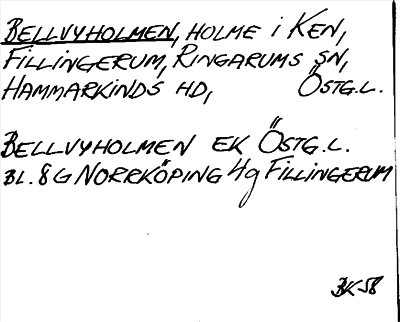 BELLVYHOLMEN, HOLME i KEN,
FILLINGERUM, RINGARUMS SN,
HAMMARKINDS HD, ÖSTG.L.
BELLVYHOLMEN EK ÖSTG.L.
BL. 8G NORRKÖPING 4g FILLINGERUM